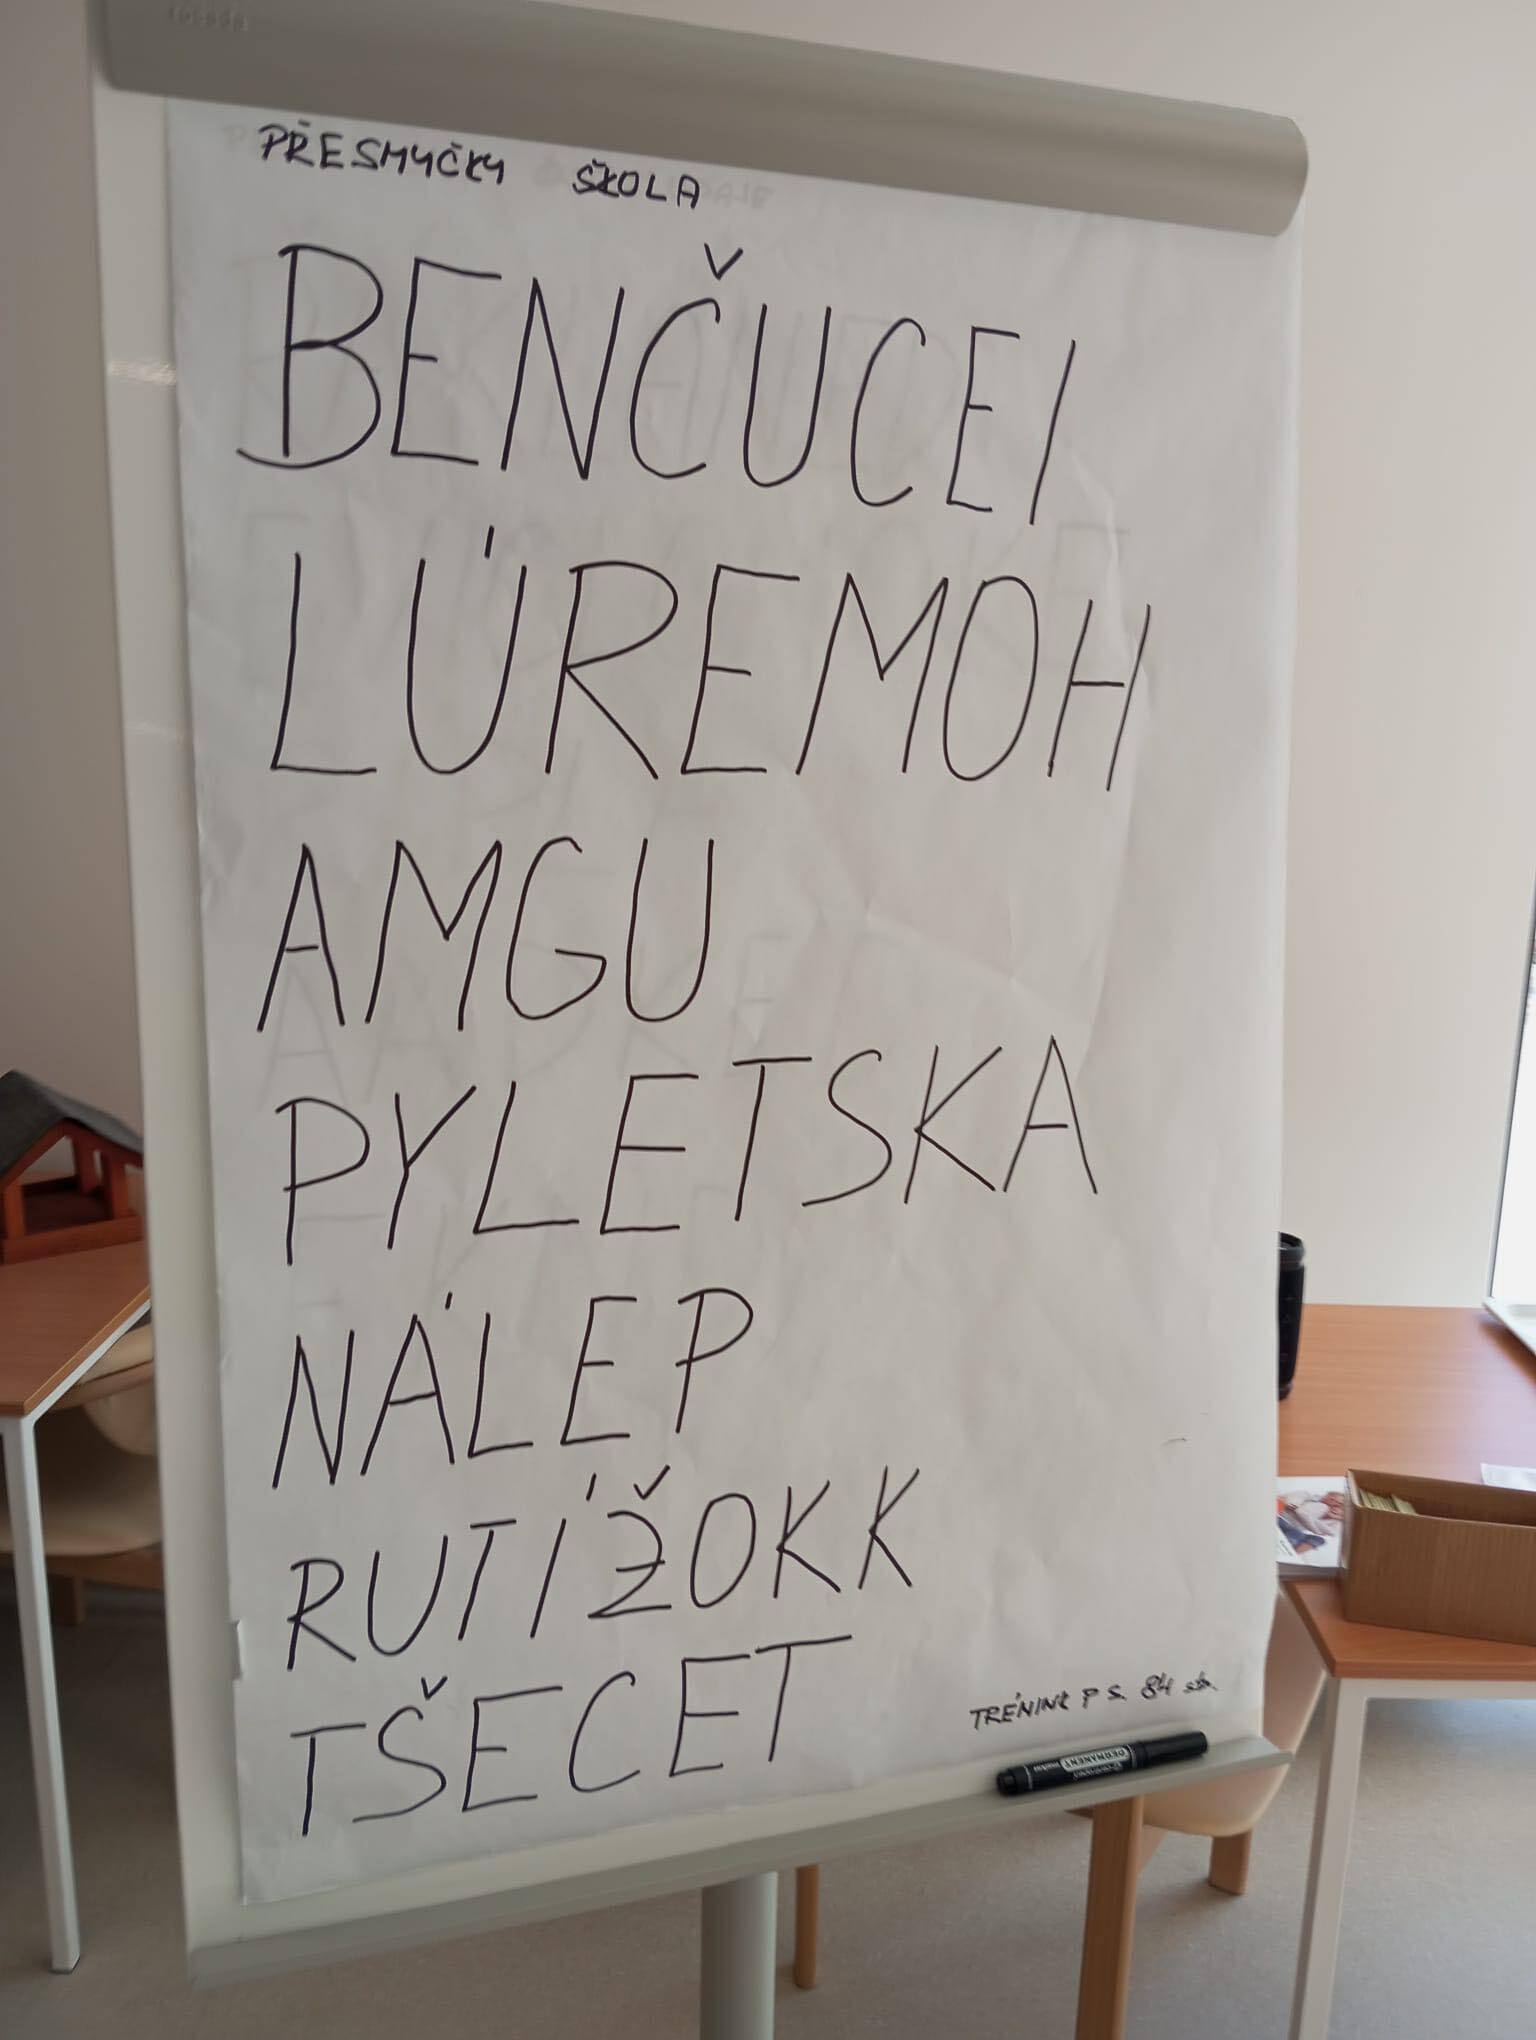 PŘESMYČKY ŠKOLA
BENČUCEI
LÚREMOH
AMGU
PYLETSKA
NÁLEP
RUTÍŽOKK
TŠECET
TRÉNINK P S. 84 str.
PERMANENT